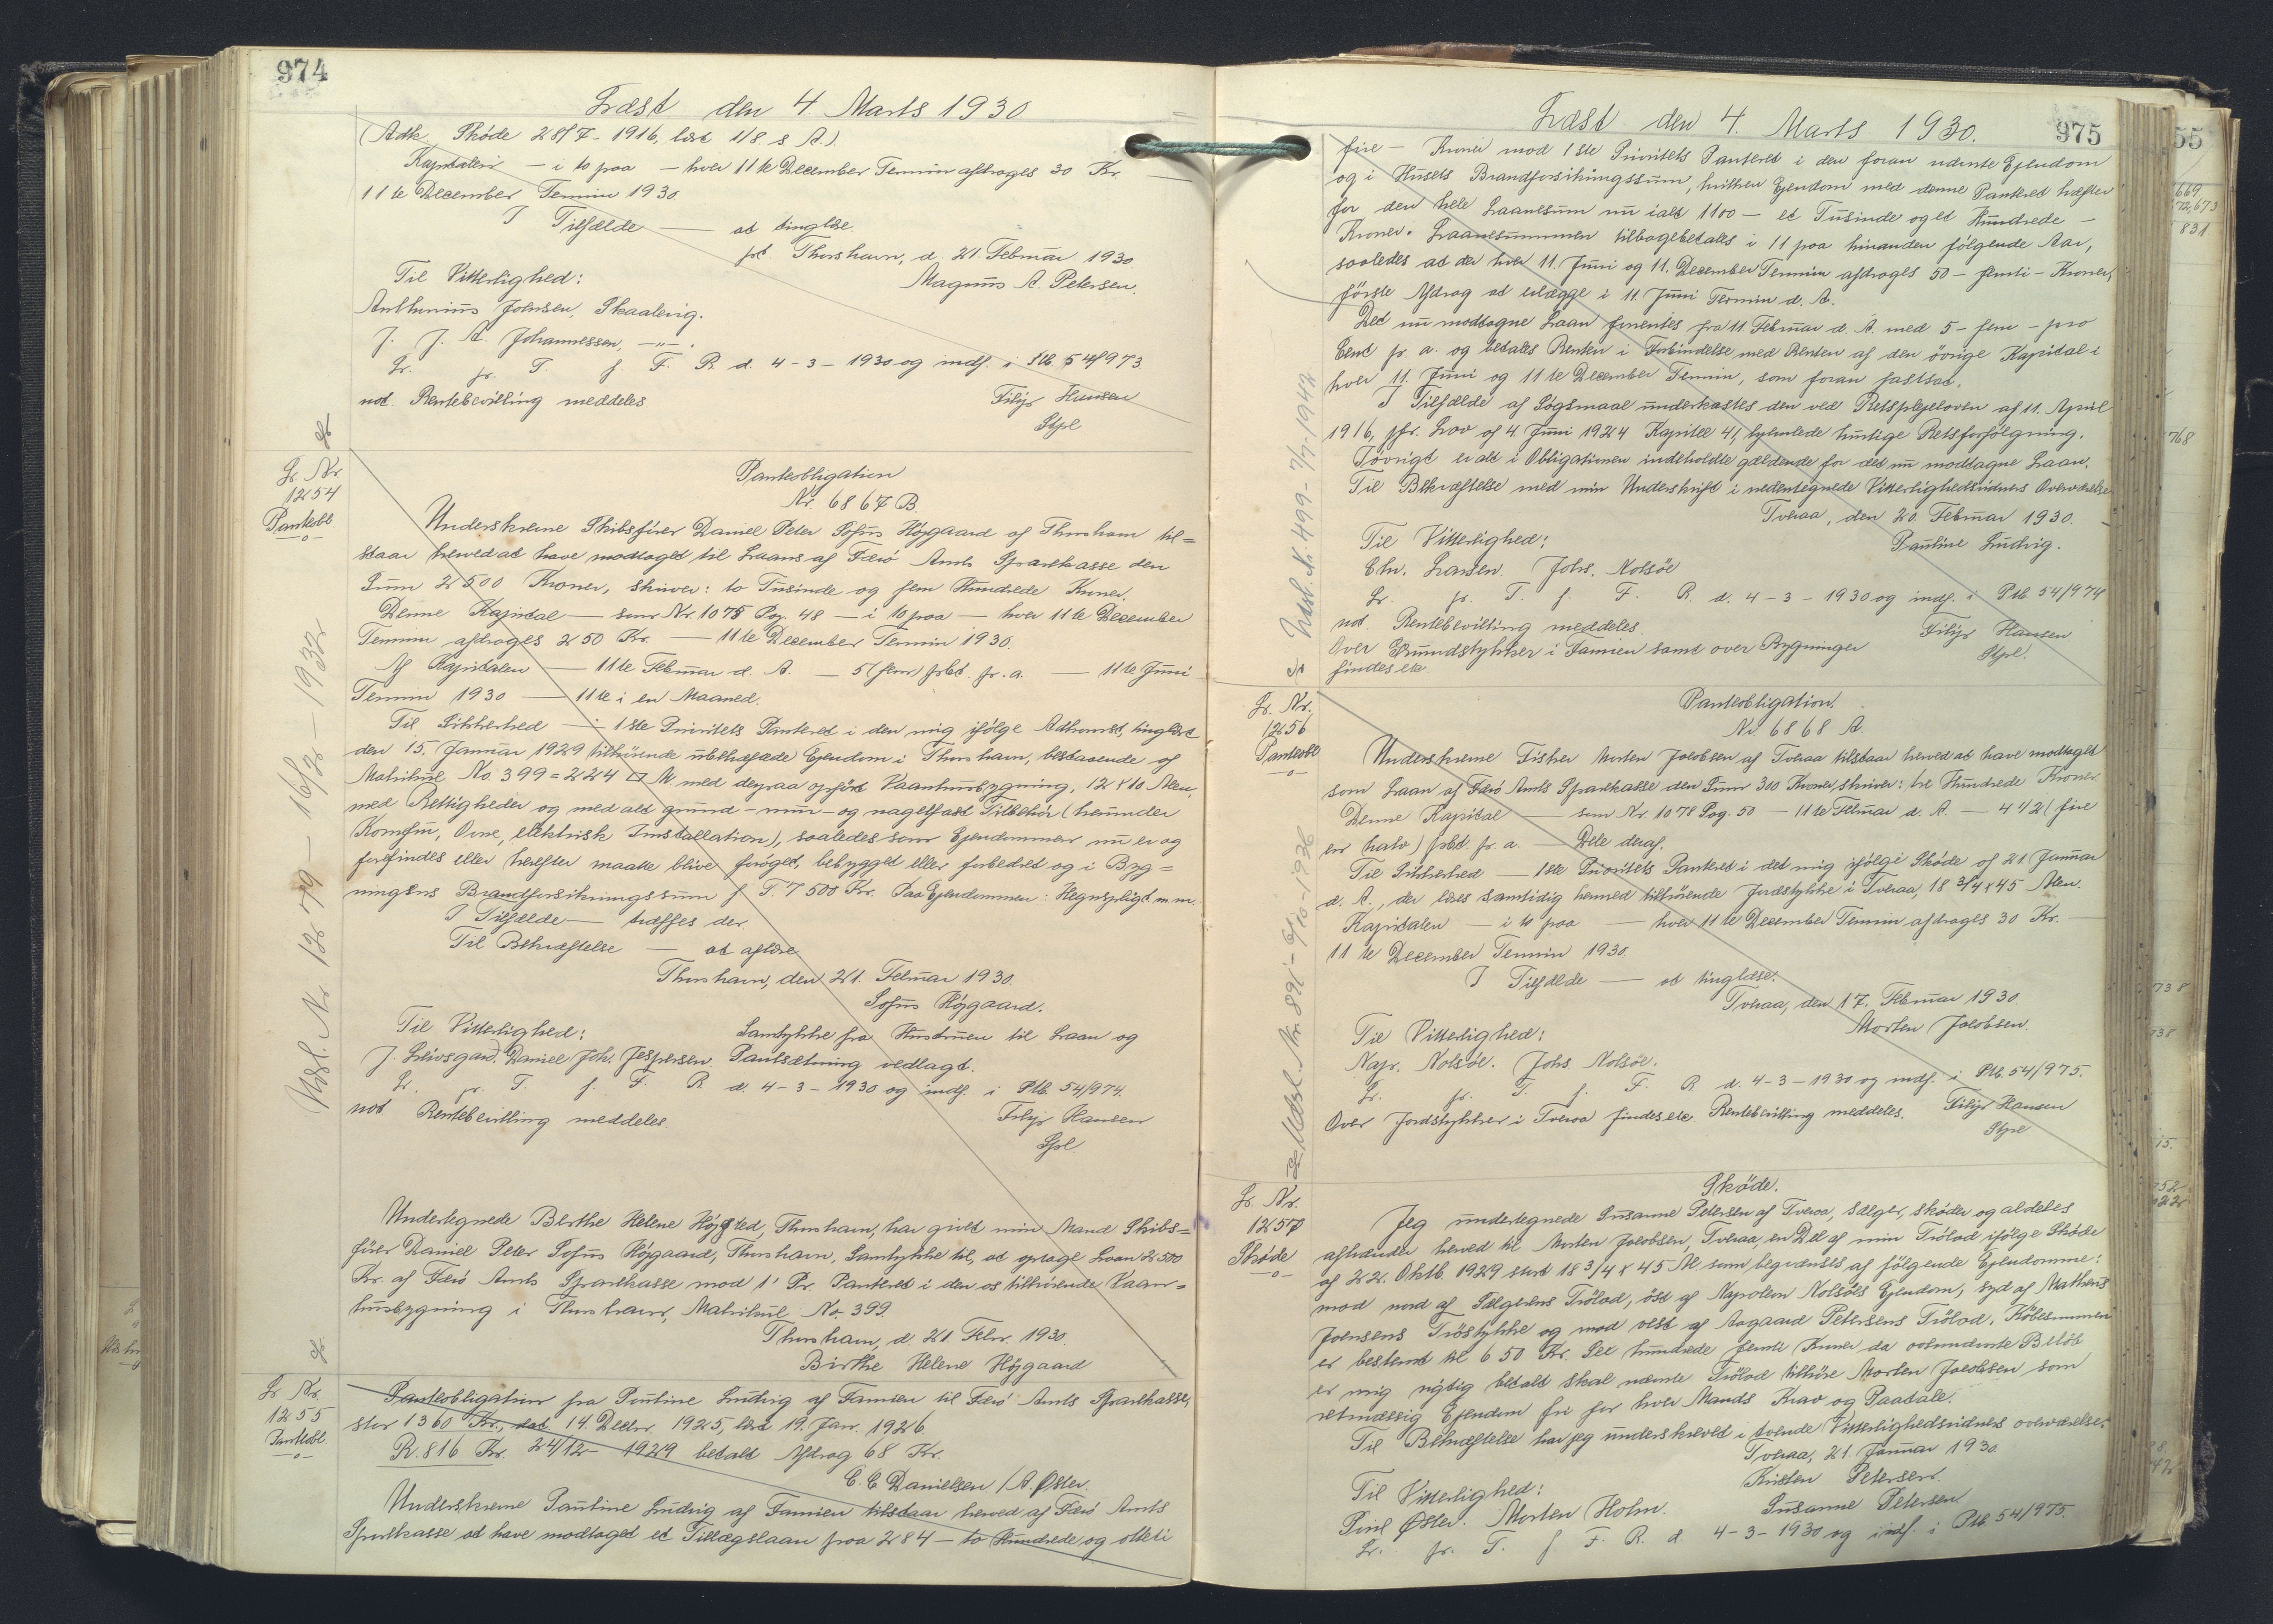 974
Læst den 4 Marts 1930
(Adk. Skøde 28/7-1916, læst 1/8 s A.).
Kapitalen — i to paa — hver 11te December Termin afdrages 30 Kr.
11te December Termin 1930.
I Tilfælde — at tinglæse.
pt. Thorshavn, d. 21. Februar 1930
Til Vitterlighed: Magnus A. Petersen.
Anthonius Joensen, Skaalevig.
J. J. A. Johannessen, —"—.
Lr. pr. T. f. F. R. d. 4-3-1930 og indf. i Ptb 54/973.
not. Rentebevilling meddeles. Filip Hansen
Stpl
Lr. Nr.
1254
Panteobl.
Panteobligation
Nr. 6867 B.
Underskrevne Skibsfører Daniel Peter Sofus Højgaard af Thorshavn til=
staar herved at have modtaget til Laans af Færø Amts Sparekasse den
Sum 2500 Kroner, skriver: to Tusinde og fem Hundrede Kroner.
Denne Kapital — som Nr. 1075 Pag. 48 — i to paa — hver 11te December
Termin afdrages 250 Kr. — 11te December Termin 1930.
Af Kapitalen — 11te Februar d. A. — 5 (fem) pCt. pr. a. — 11te Juni
Termin 1930 — 11te i en Maaned.
Til Sikkerhed — i 1ste Prioritets Panteret i den mig ifølge Adkomst, tinglæst
den 15. Januar 1929 tilhørende ubehæftede Ejendom i Thorshavn, bestaaende af
Matrikul No 399 = 224 □ Al med derpaa opført Vaaningsbygning, 12 x 10 Alen,
med Rettigheder og med alt grund- mur- og nagelfast Tilbehør (herunder
Komfur, Ovne, elektrisk Installation), saaledes som Ejendommen nu er og
forefindes eller herefter maatte blive forøget, bebygget eller forbedret og i Byg=
ningens Brandforsikringssum f. T. 7500 Kr. Paa Ejendommen: Hegnspligt m.m.
I Tilfælde — træffes der.
Til Bekræftelse — at aflæse
Thorshavn, den 21. Februar 1930.
Sofus Højgaard.
Til Vitterlighed: Samtykke fra Hustruen til Laan og
J. Livsgard. Daniel Joh. Jespersen. Pantsætning vedlagt.
Lr. pr. T. f. F. R. d. 4-3-1930 og indf. i Ptb. 54/974.
not Rentebevilling meddeles. Filip Hansen
Stpl.
Udsl. Nr. 1279 - 16/12 - 1932
Undertegnede Birthe Helene Højgaard, Thorshavn, har givet min Mand Skibs=
fører Daniel Peter Sofus Højgaard, Thorshavn, Samtykke til, at optage Laan 2500
Kr. af Færø Amts Sparekasse mod 1' Pr. Panteret i den os tilhørende Vaan=
husbygning i Thorshavn, Matrikul No. 399.
Thorshavn, d. 21. Febr. 1930.
Birthe Helene Højgaard
Lr. Nr.
1255
Panteobl.
Panteobligation fra Pauline Ludvig af Famien til Færø Amts Sparekasse,
stor 1360 Kr., dat. 14. Decbr. 1925, læst 19. Jan. 1926.
R. 816 Kr. 24/12-1929 betalt Afdrag 68 Kr.
C. C. Danielsen / A. Øster.
Underskrevne Pauline Ludvig af Famien tilstaar herved af Færø Amts
Sparekasse at have modtaget et Tillægslaan paa 284 — to Hundrede og otteti
Læst den 4. Marts 1930.
975
fire — Kroner mod 1ste Prioritets Panteret i den foran nævnte Ejendom
og i Husets Brandforsikringssum, hvilken Ejendom med denne Panteret hæfter
for den hele Laanesum nu ialt 1100 — et Tusinde og et Hundrede —
Kroner. Laanesummen tilbagebetales i 11 paa hinanden følgende Aar,
saaledes at der hver 11. Juni og 11. December Termin afdrages 50 — femti — Kroner,
første Afdrag at erlægge i 11. Juni Termin d. A.
Det nu modtagne Laan forrentes fra 11. Februar d. A. med 5 — fem — pro
Cent pr. a. og betales Renten i Forbindelse med Renten af den øvrige Kapital i
hver 11. Juni og 11te December Termin, som foran fastsat.
I Tilfælde af Søgsmaal underkastes den ved Retsplejeloven af 11. April
1916, jfr. Lov af 4. Juni 1924 Kapitel 41, hjemlede hurtige Retsforfølgning.
Iøvrigt er alt i Obligationen indeholdte gældende for det nu modtagne Laan.
Til Bekræftelse med min Underskrift i nedentegnede Vitterlighedsvidners Overværelse
Tveraa, den 20. Februar 1930.
Til Vitterlighed: Pauline Ludvig.
Chr. Larsen. Johs. Nolsøe
Lr. pr. T. f. F. R. d. 4-3-1930 og indf. i Ptb 54/974
not. Rentebevilling meddeles. Filip Hansen
Over Grundstykker i Famien samt over Bygninger Stpl.
findes etc
Udsl. Nr. 499 - 7/7-1942
Lr. Nr.
1256
Panteobl
Panteobligation.
Nr 6868 A.
Underskrevne Fisker Morten Jacobsen af Tveraa tilstaar herved at have modtaget
som Laan af Færø Amts Sparekasse den Sum 300 Kroner, skriver: tre Hundrede Kroner.
Denne Kapital — som Nr 1078 Pag. 50 — 11te Februar d. A. — 4 1/2 (fire
en halv) pCt pr. a. — Dele deraf.
Til Sikkerhed — 1ste Prioritets Panteret i det mig ifølge Skøde af 21 Januar
d. A., der læses samtidig hermed tilhørende Jordstykke i Tveraa, 18 3/4 x 45 Alen.
Kapitalen — i to paa — hver 11te December Termin afdrages 30 Kr. —
11te December Termin 1930.
I Tilfælde — at tinglæse.
Tveraa, den 17. Februar 1930.
Til Vitterlighed: Morten Jacobsen.
Napr. Nolsøe. Johs Nolsøe.
Lr. pr. T. f. F. R d. 4-3-1930 og indf. i Ptb. 54/975.
Over Jordstykker i Tveraa findes etc. Rentebevilling meddeles. Filip Hansen
Stpl
Lr. Nr.
1257
Skøde
Skøde.
Jeg undertegnede Susanne Petersen af Tveraa, sælger, skøder og aldeles
afhænder herved til Morten Jacobsen, Tveraa, en Del af min Trölad ifølge Skøde
af 22. Oktb. 1929 stort 18 3/4 x 45 Al. som begrænses af følgende Ejendomme:
mod nord af Sælgerens Trölad, øst af Napoleon Nolsøes Ejendom, syd af Mathæus
Joensens Tröstykke og mod vest af Aagaard Petersens Trölad. Købesummen
er bestemt til 650 Kr. Seks hundrede femti Kroner, da ovennævnte Beløb
er mig rigtig betalt skal nævnte Trölad tilhøre Morten Jacobsen som
retmæssig Ejendom fri for hver Mands Krav og Paatale.
Til Bekræftelse har jeg underskrevet i tvende Vitterlighedsvidners overværelse.
Tveraa, 21. Januar 1930
Til Vitterlighed: Kristen Petersen.
Poul Øster. Morten Holm. Susanne Petersen
Lr. pr. T. f F. R. d. 4-3-1930 og indf. i Ptb 54/975.